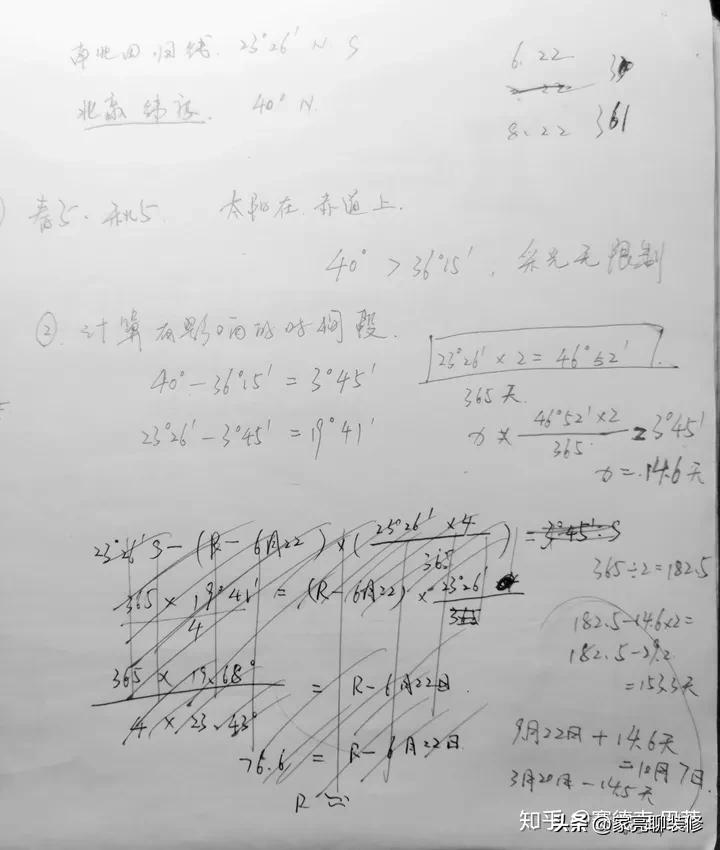 南北回归线 23°26′ N S
北京纬度 40° N.
6.22
8.22 361
春分·秋分 太阳在赤道上.
40° > 36°15′, 采光无限制
② 计算有影响的时间段.
40° - 36°15′ = 3°45′
23°26′ - 3°45′ = 19°41′
23°26′ × 2 = 46°52′
365天
x × 46°52′×2 / 365 = 3°45′
x = 14.6天
23°26′ S - (R - 6月22) × (23°26′ × 4 / 365) = 3°45′ S
365 × 19°41′ / 4 = (R - 6月22) × 23°26′
365 × 19.68° / 4 × 23.43° = R - 6月22日.
76.6 = R - 6月22日
R ≌
365÷2=182.5
182.5-14.6×2=
182.5-29.2
=153.3天
9月22日 + 14.6天
=10月7日.
3月20日 - 14.5天
知乎
头条 @家亮聊装修